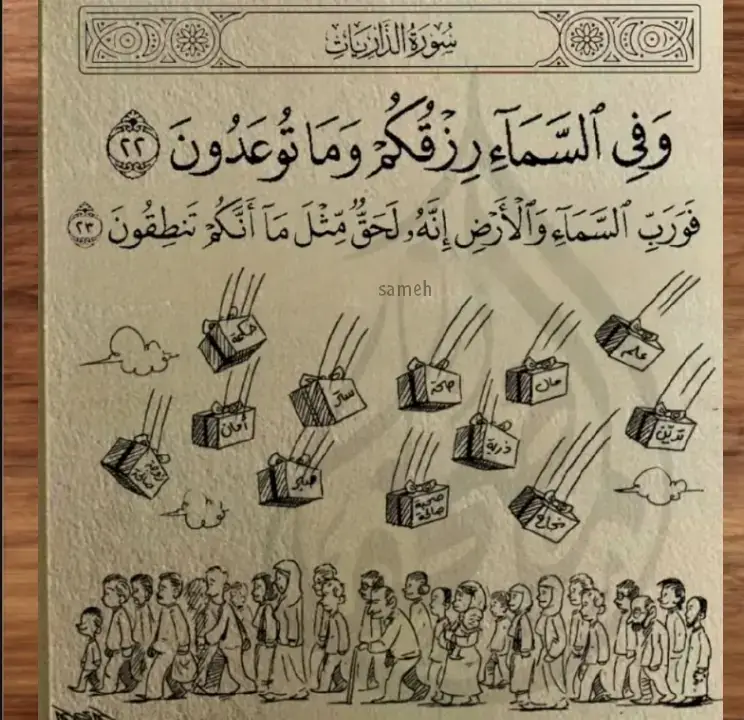 سُورَةُ الذَّارِيَاتِ
وَفِي ٱلسَّمَآءِ رِزۡقُكُمۡ وَمَا تُوعَدُونَ ٢٢
فَوَرَبِّ ٱلسَّمَآءِ وَٱلۡأَرۡضِ إِنَّهُۥ لَحَقّٞ مِّثۡلَ مَآ أَنَّكُمۡ تَنطِقُونَ ٢٣
sameh
حكمة
علم
مال
صحة
ستر
أمان
تديّن
ذرية
زوجة صالحة
صحبة
صالحة
نجاح